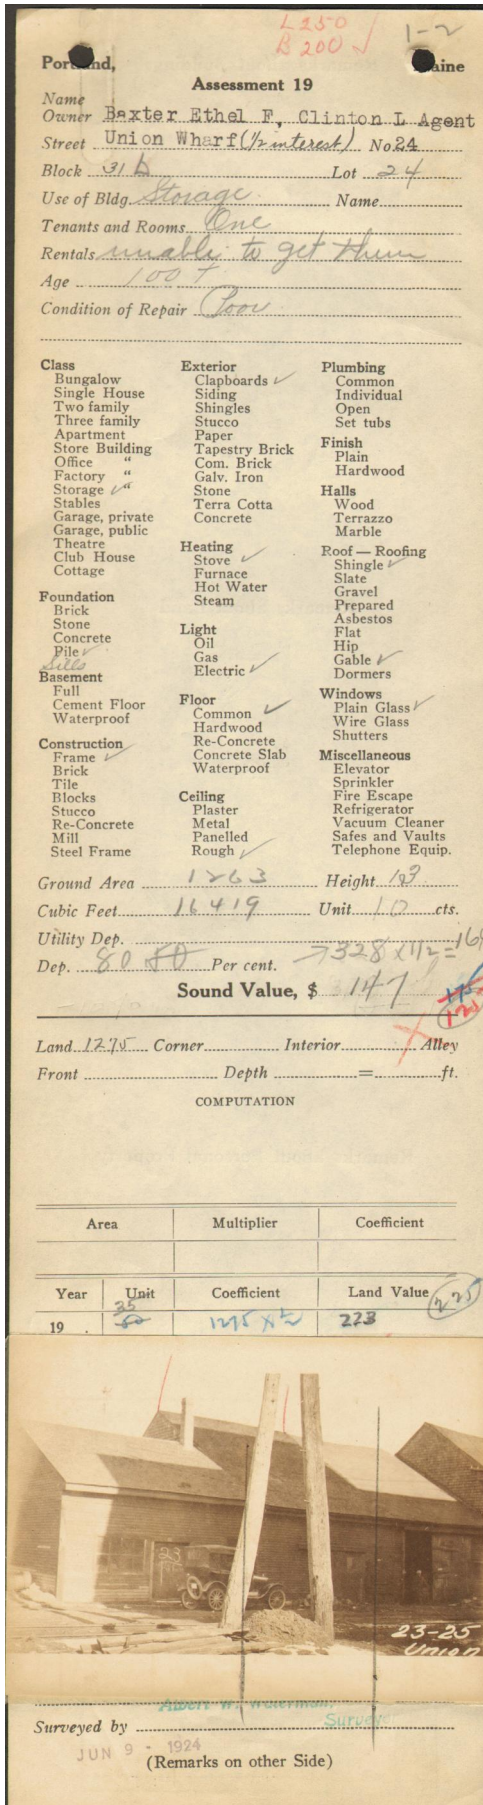 L 250
B 200 ✓
1-2
Portland, Maine
Assessment 19
Name
Owner Baxter Ethel F, Clinton L Agent
Street Union Wharf (1/2 interest) No 24
Block 31 b Lot 24
Use of Bldg. Storage Name
Tenants and Rooms One
Rentals unable to get them
Age 100 +
Condition of Repair Poor
Class
Bungalow
Single House
Two family
Three family
Apartment
Store Building
Office "
Factory "
Storage ✓ "
Stables
Garage, private
Garage, public
Theatre
Club House
Cottage
Foundation
Brick
Stone
Concrete
Pile ✓
Sills
Basement
Full
Cement Floor
Waterproof
Construction
Frame ✓
Brick
Tile
Blocks
Stucco
Re-Concrete
Mill
Steel Frame
Exterior
Clapboards ✓
Siding
Shingles
Stucco
Paper
Tapestry Brick
Com. Brick
Galv. Iron
Stone
Terra Cotta
Concrete
Heating
Stove ✓
Furnace
Hot Water
Steam
Light
Oil
Gas
Electric ✓
Floor
Common ✓
Hardwood
Re-Concrete
Concrete Slab
Waterproof
Ceiling
Plaster
Metal
Panelled
Rough ✓
Plumbing
Common
Individual
Open
Set tubs
Finish
Plain
Hardwood
Halls
Wood
Terrazzo
Marble
Roof — Roofing
Shingle ✓
Slate
Gravel
Prepared
Asbestos
Flat
Hip
Gable ✓
Dormers
Windows
Plain Glass ✓
Wire Glass
Shutters
Miscellaneous
Elevator
Sprinkler
Fire Escape
Refrigerator
Vacuum Cleaner
Safes and Vaults
Telephone Equip.
Ground Area 1263 Height 13
Cubic Feet 16419 Unit 10 cts.
Utility Dep.
Dep. 80 50 Per cent. 328 x 1/2 = 164
Sound Value, $ 147
Land 1275 Corner Interior Alley
Front Depth = ft.
COMPUTATION
Area Multiplier Coefficient
Year Unit Coefficient Land Value 225
35
19 . 50 1275 x 1/2 223
23
23-25
Union
Albert W. Waterman.
Surveyed by Surveyor
JUN 9 - 1924
(Remarks on other Side)